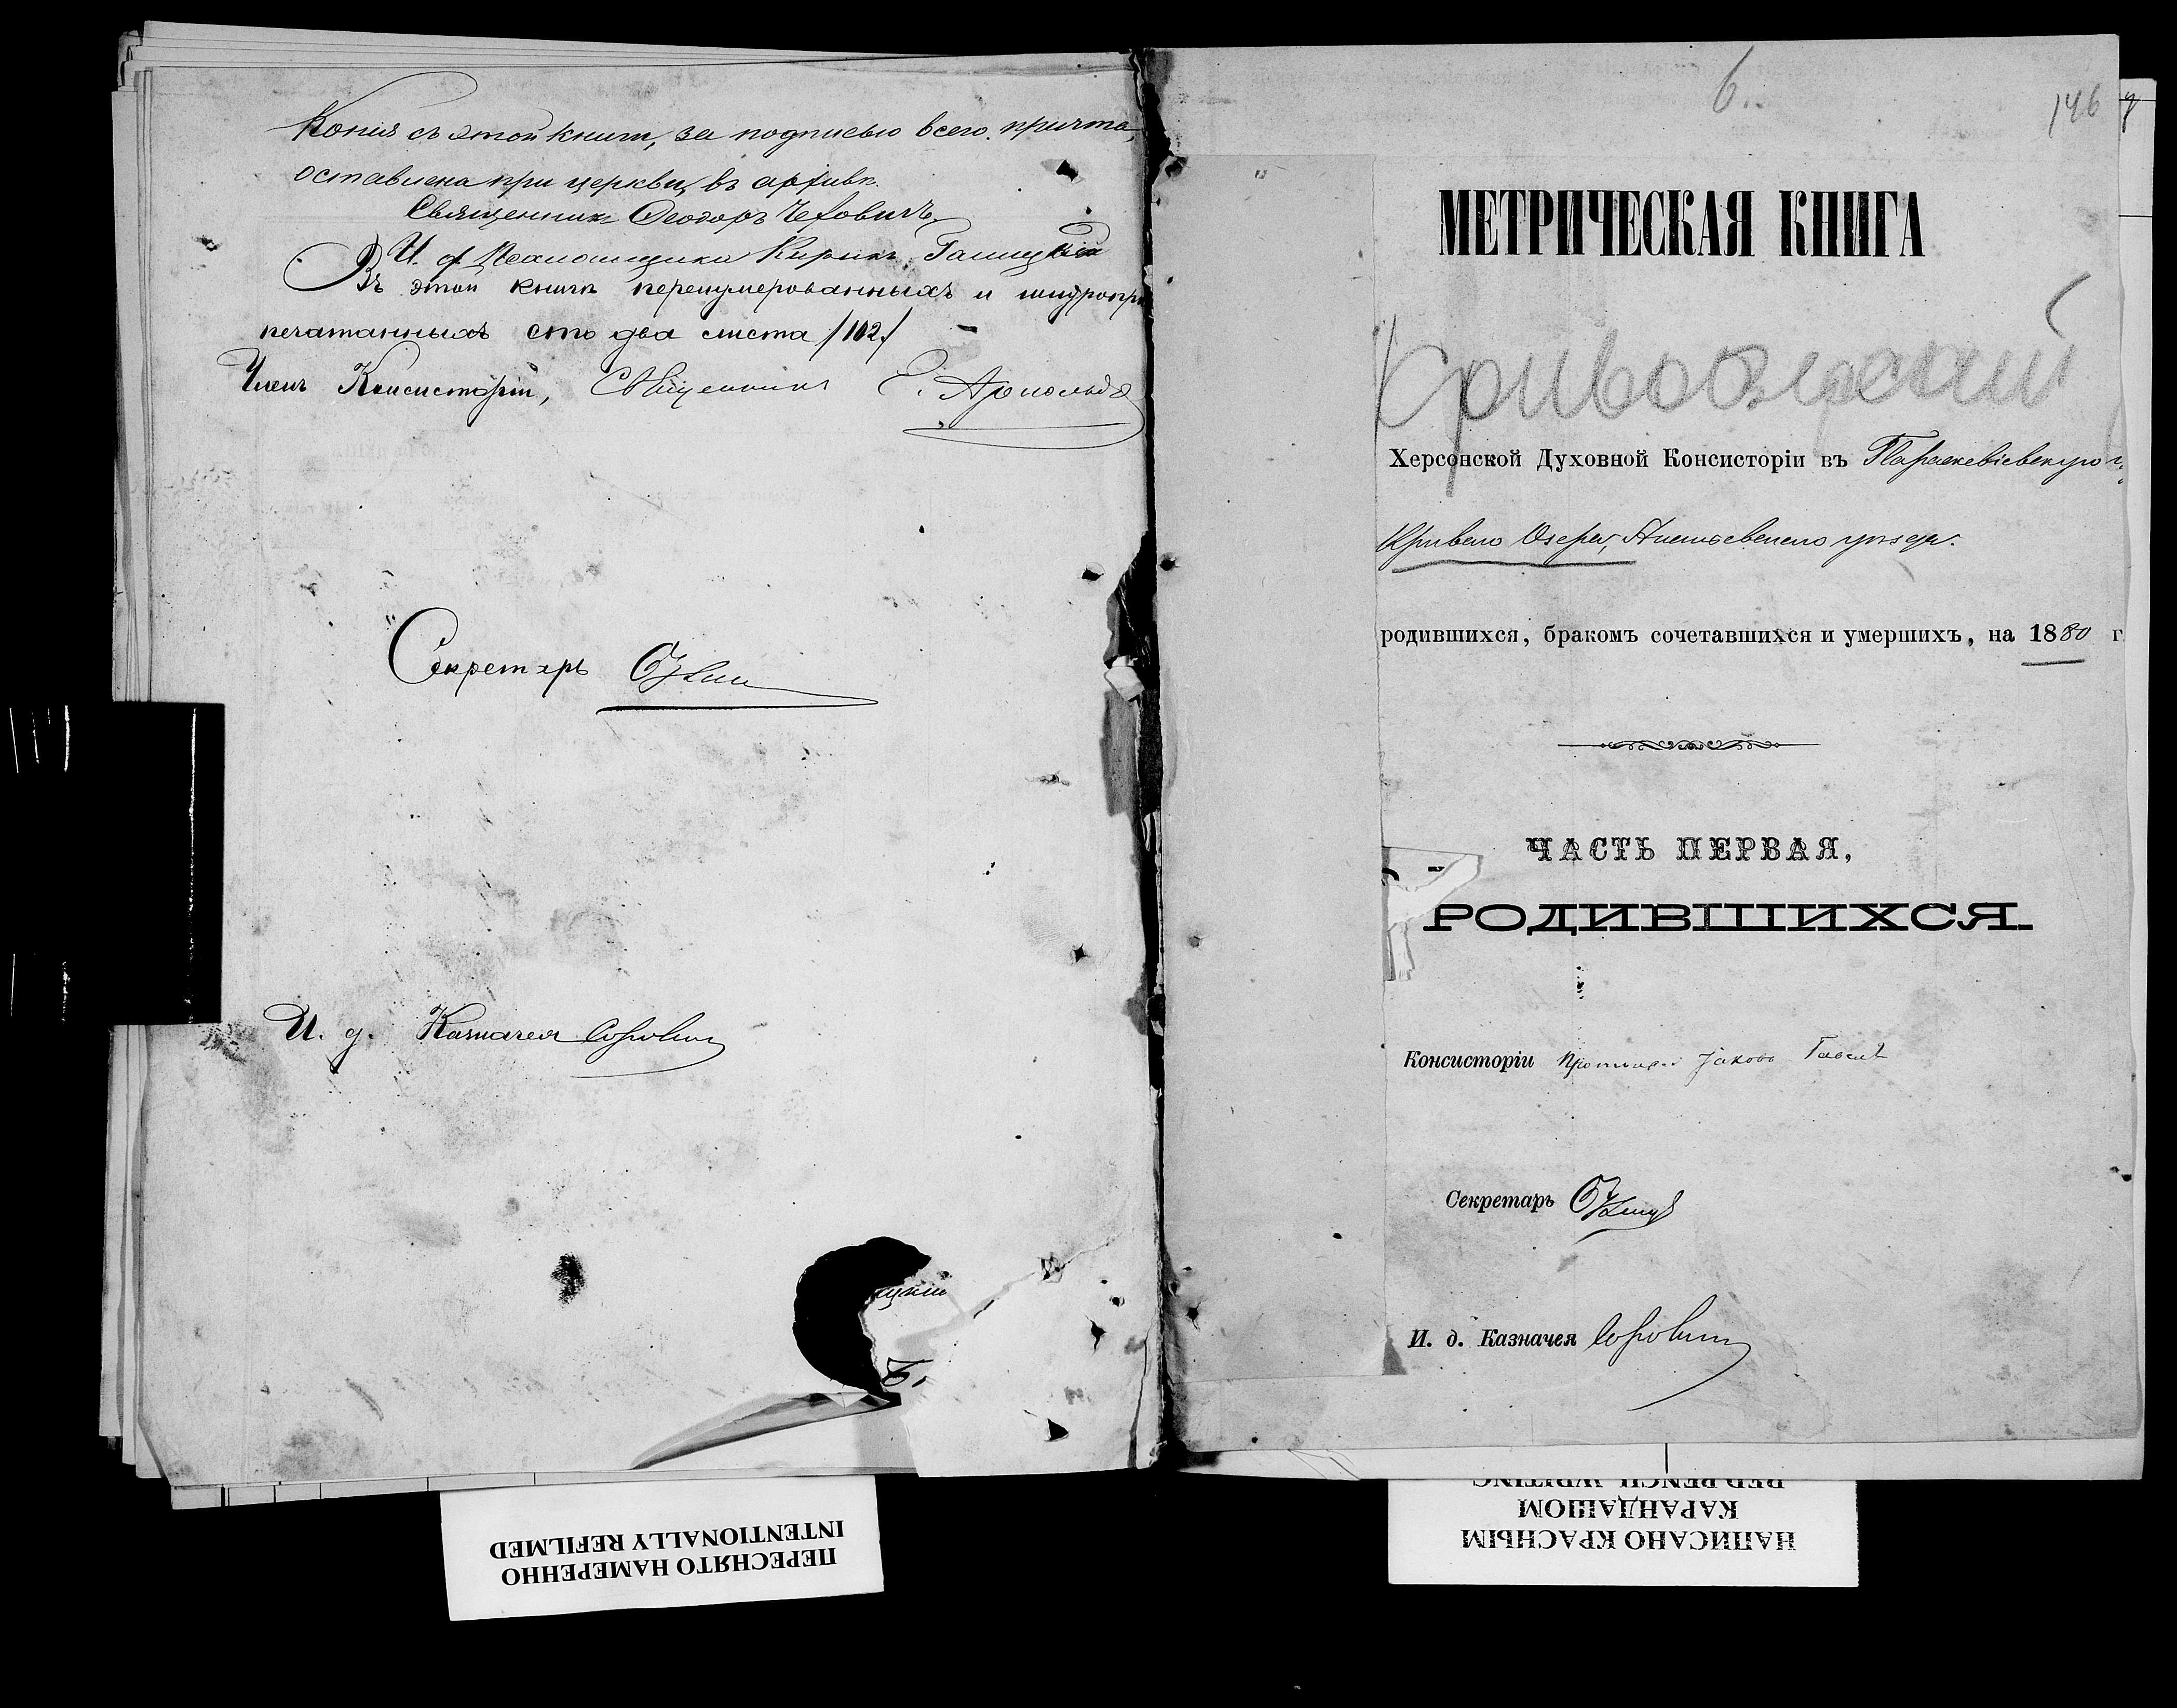 Копія съ этой книги, за подписью всего причта,
оставлена при церкви, въ архивѣ.
Священникъ Ѳеодоръ Чеховичъ
И. д. Псаломщика Кирикъ Галицкій
Въ этой книгѣ перенумерованныхъ и шнуропри
печатанныхъ сто два листа /102/
Членъ Консисторіи, Священникъ С. Арнольдъ
Секретарь
И. д. Казначея
6.
146
МЕТРИЧЕСКАЯ КНИГА
Кривоозерский
Херсонской Духовной Консисторіи въ Параскевіевскую
Криваго Озера, Ананьевскаго уѣзда.
родившихся, бракомъ сочетавшихся и умершихъ, на 1880 г
ЧАСТЬ ПЕРВАЯ,
РОДИВШИХСЯ.
Консисторіи Протоіерей Іаковъ
Секретарь
И. д. Казначея
ПЕРЕСНЯТО НАМЕРЕННО
INTENTIONALLY REFILMED
НАПИСАНО КРАСНЫМ
КАРАНДАШОМ
RED PENCIL WRITING